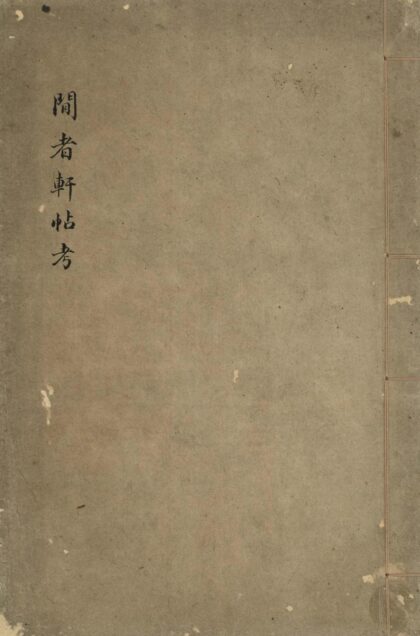 閒者軒帖考